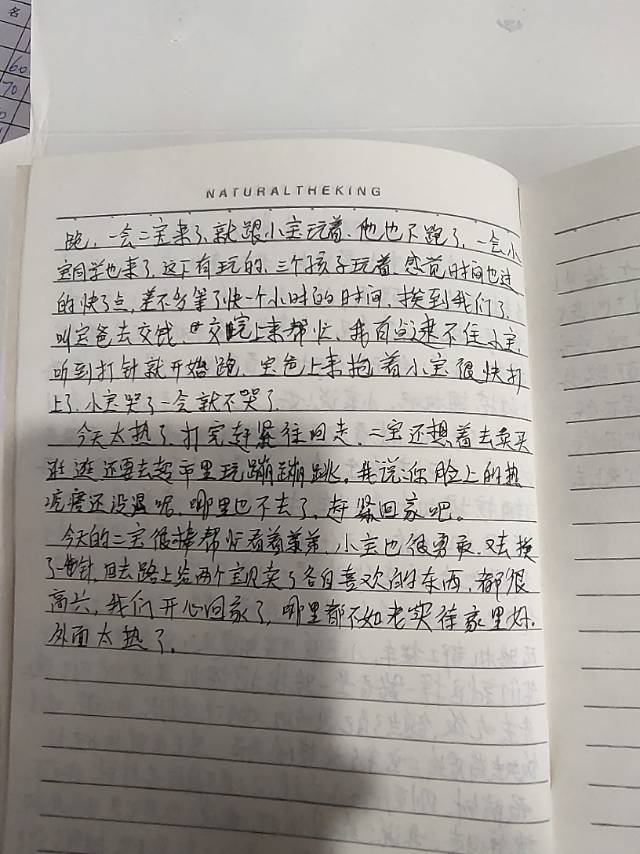 名
60
70
NATURALTHEKING
跑，一会二宝来了，就跟小宝玩着，他也不跑了，一会小
宝同学也来了，这下有玩的，三个孩子玩着，感觉时间也过
的快了点，差不多等了快一个小时的时间，挨到我们了，
叫宝爸去交钱，交完上来帮忙，我有点逮不住小宝，
听到打针就开始跑，宝爸上来抱着小宝很快打
上了，小宝哭了一会就不哭了，
今天太热了，打完赶紧往回走，二宝还想着去卖买
逛逛还要去超市里玩蹦蹦跳，我说：你脸上的热
疙瘩还没退呢，哪里也不去了，赶紧回家吧。
今天的二宝很棒帮忙看着弟弟，小宝也很勇敢，又去挨
了一针，回去路上给两个宝贝卖了各自喜欢的东西，都很
高兴，我们开心回家了，哪里都不如老实待家里好，
外面太热了，